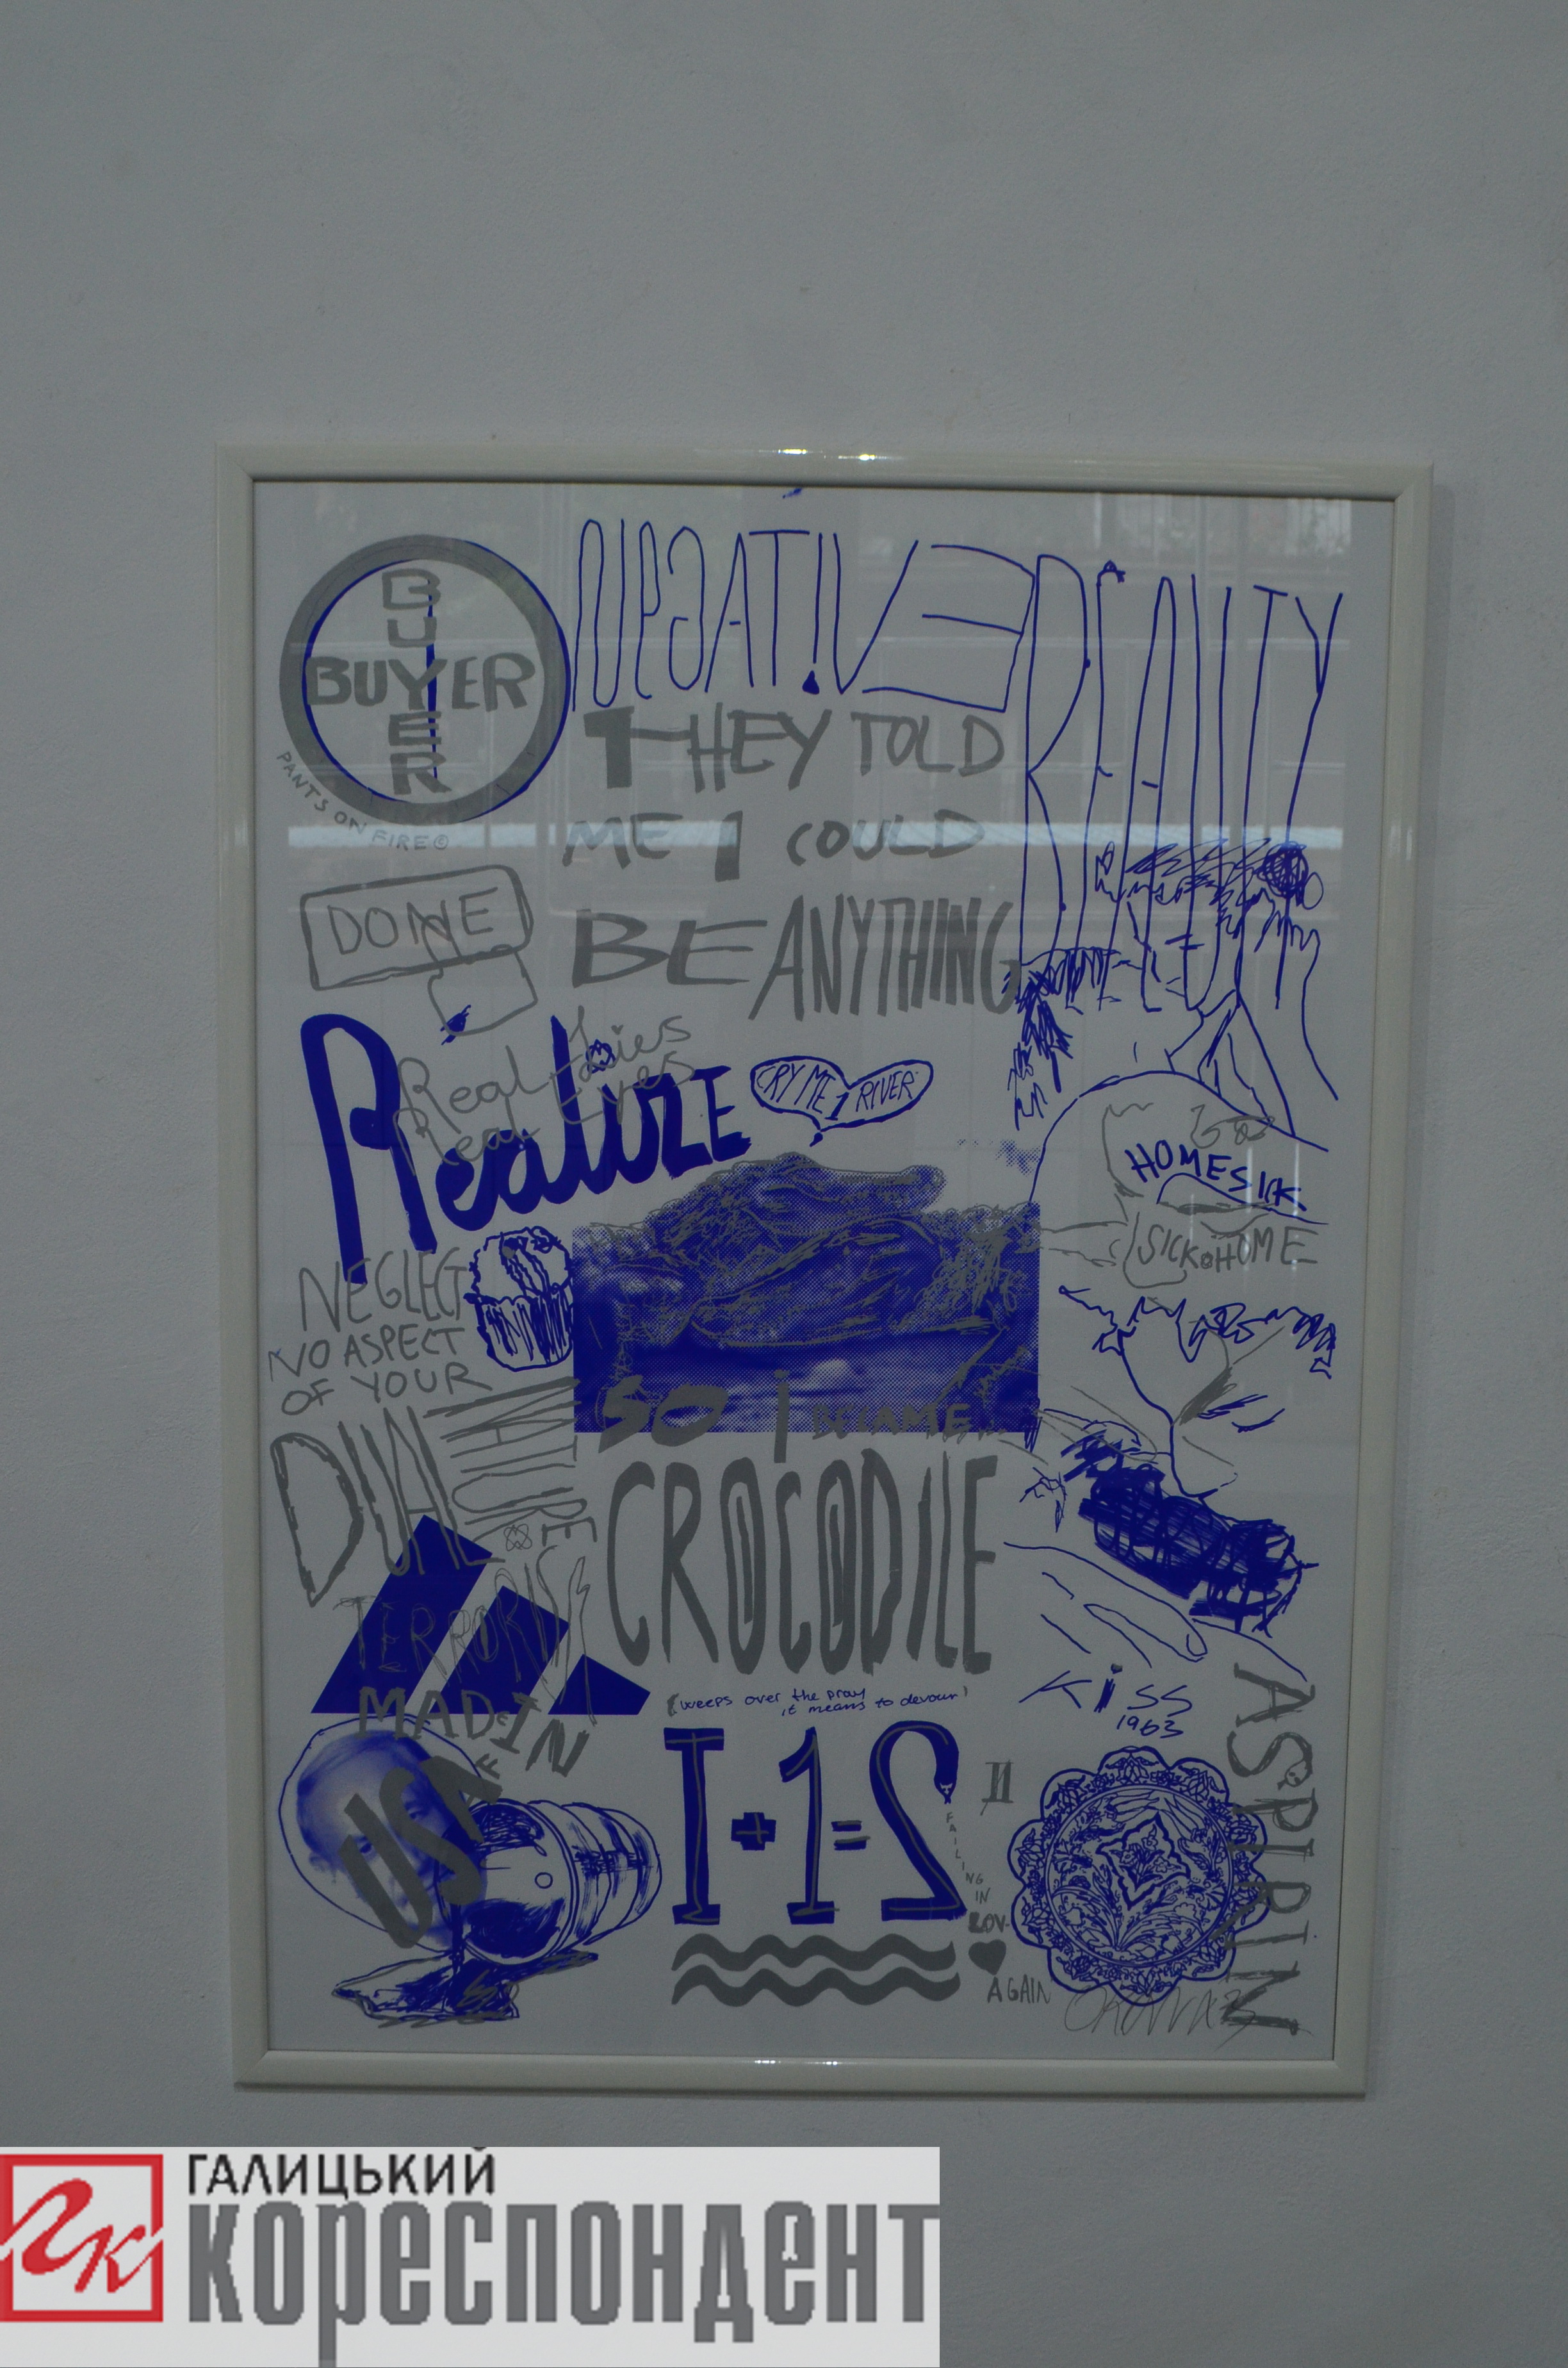 BUYER
BUYER
PANTS ON FIRE©
NEGATIVE
BEAUTY
THEY TOLD
ME I COULD
BE ANYTHING
DONE
Real Lies
Real Eyes
RealIZE
CRY ME 1 RIVER
HOMESICK
SICK@HOME
NEGLECT
NO ASPECT
OF YOUR
DUAL
NATURE
SO i BECAME
CROCODILE
(weeps over the pray
it means to devour)
TERRORIST
MADE IN
USA
KiSS
1963
ASPIRIN
I+1=2
FAILING
IN
LOV-
AGAIN
ГАЛИЦЬКИЙ
кореспондент
ГК